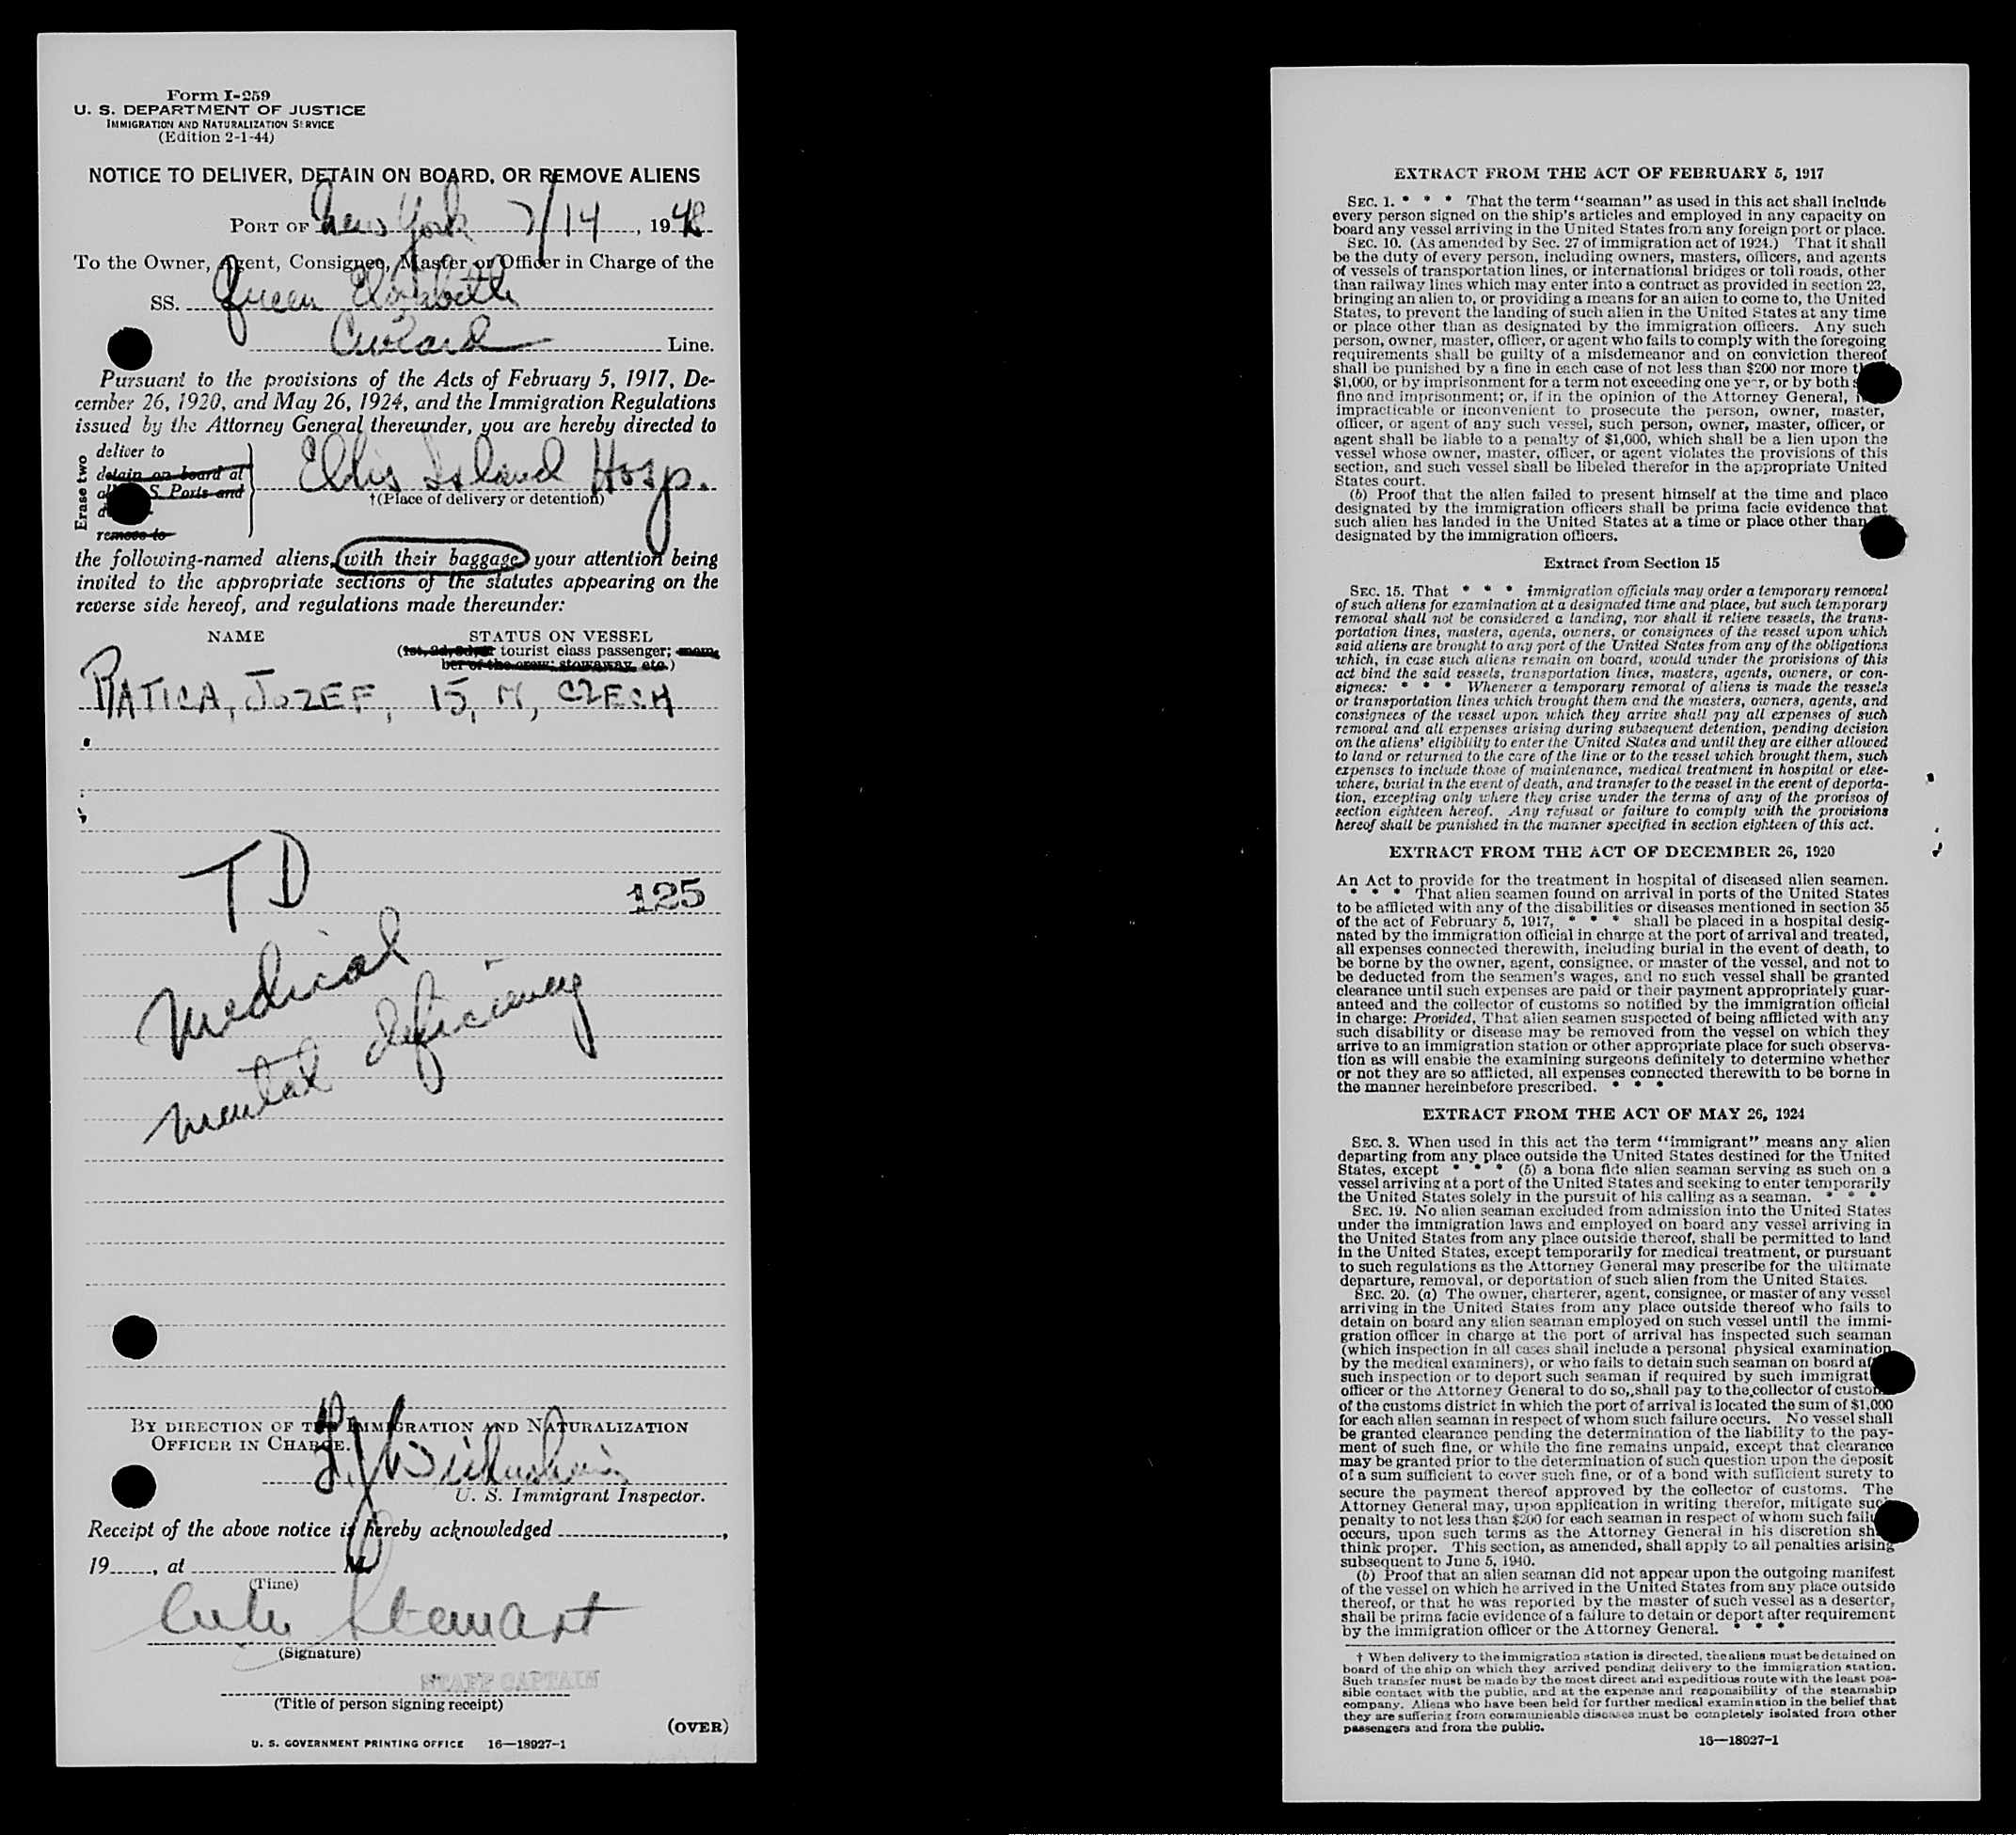 Form I-259
U. S. DEPARTMENT OF JUSTICE
IMMIGRATION AND NATURALIZATION SERVICE
(Edition 2-1-44)
NOTICE TO DELIVER, DETAIN ON BOARD, OR REMOVE ALIENS
PORT OF New York 7/14, 1948
To the Owner, Agent, Consignee, Master or Officer in Charge of the
SS. Queen Elizabeth
Cunard Line.
Pursuant to the provisions of the Acts of February 5, 1917, De-
cember 26, 1920, and May 26, 1924, and the Immigration Regulations
issued by the Attorney General thereunder, you are hereby directed to
Erase two
deliver to
detain on board at
S. Ports and
remove to
Ellis Island Hosp.
†(Place of delivery or detention)
the following-named aliens, with their baggage, your attention being
invited to the appropriate sections of the statutes appearing on the
reverse side hereof, and regulations made thereunder:
NAME STATUS ON VESSEL
(1st, 2d, 3d, or tourist class passenger; mem-
ber of the crew; stowaway, etc.)
RATICA, JOZEF, 15, M, CZECH
TD
125
Medical
mental deficiency
BY DIRECTION OF THE IMMIGRATION AND NATURALIZATION
OFFICER IN CHARGE.
U. S. Immigrant Inspector.
Receipt of the above notice is hereby acknowledged ,
19 , at M.
(Time)
Stewart
(Signature)
STAFF CAPTAIN
(Title of person signing receipt)
(OVER)
U. S. GOVERNMENT PRINTING OFFICE 16—18927-1
EXTRACT FROM THE ACT OF FEBRUARY 5, 1917
SEC. 1. * * * That the term “seaman” as used in this act shall include
every person signed on the ship's articles and employed in any capacity on
board any vessel arriving in the United States from any foreign port or place.
SEC. 10. (As amended by Sec. 27 of immigration act of 1924.) That it shall
be the duty of every person, including owners, masters, officers, and agents
of vessels of transportation lines, or international bridges or toll roads, other
than railway lines which may enter into a contract as provided in section 23,
bringing an alien to, or providing a means for an alien to come to, the United
States, to prevent the landing of such alien in the United States at any time
or place other than as designated by the immigration officers. Any such
person, owner, master, officer, or agent who fails to comply with the foregoing
requirements shall be guilty of a misdemeanor and on conviction thereof
shall be punished by a fine in each case of not less than $200 nor more
$1,000, or by imprisonment for a term not exceeding one year, or by both
fine and imprisonment; or, if in the opinion of the Attorney General,
impracticable or inconvenient to prosecute the person, owner, master,
officer, or agent of any such vessel, such person, owner, master, officer, or
agent shall be liable to a penalty of $1,000, which shall be a lien upon the
vessel whose owner, master, officer, or agent violates the provisions of this
section, and such vessel shall be libeled therefor in the appropriate United
States court.
(b) Proof that the alien failed to present himself at the time and place
designated by the immigration officers shall be prima facie evidence that
such alien has landed in the United States at a time or place other than
designated by the immigration officers.
Extract from Section 15
SEC. 15. That * * * immigration officials may order a temporary removal
of such aliens for examination at a designated time and place, but such temporary
removal shall not be considered a landing, nor shall it relieve vessels, the trans-
portation lines, masters, agents, owners, or consignees of the vessel upon which
said aliens are brought to any port of the United States from any of the obligations
which, in case such aliens remain on board, would under the provisions of this
act bind the said vessels, transportation lines, masters, agents, owners, or con-
signees: * * * Whenever a temporary removal of aliens is made the vessels
or transportation lines which brought them and the masters, owners, agents, and
consignees of the vessel upon which they arrive shall pay all expenses of such
removal and all expenses arising during subsequent detention, pending decision
on the aliens' eligibility to enter the United States and until they are either allowed
to land or returned to the care of the line or to the vessel which brought them, such
expenses to include those of maintenance, medical treatment in hospital or else-
where, burial in the event of death, and transfer to the vessel in the event of deporta-
tion, excepting only where they arise under the terms of any of the provisos of
section eighteen hereof. Any refusal or failure to comply with the provisions
hereof shall be punished in the manner specified in section eighteen of this act.
EXTRACT FROM THE ACT OF DECEMBER 26, 1920
An Act to provide for the treatment in hospital of diseased alien seamen.
* * * That alien seamen found on arrival in ports of the United States
to be afflicted with any of the disabilities or diseases mentioned in section 35
of the act of February 5, 1917, * * * shall be placed in a hospital desig-
nated by the immigration official in charge at the port of arrival and treated,
all expenses connected therewith, including burial in the event of death, to
be borne by the owner, agent, consignee, or master of the vessel, and not to
be deducted from the seamen's wages, and no such vessel shall be granted
clearance until such expenses are paid or their payment appropriately guar-
anteed and the collector of customs so notified by the immigration official
in charge: Provided, That alien seamen suspected of being afflicted with any
such disability or disease may be removed from the vessel on which they
arrive to an immigration station or other appropriate place for such observa-
tion as will enable the examining surgeons definitely to determine whether
or not they are so afflicted, all expenses connected therewith to be borne in
the manner hereinbefore prescribed. * * *
EXTRACT FROM THE ACT OF MAY 26, 1924
SEC. 3. When used in this act the term “immigrant” means any alien
departing from any place outside the United States destined for the United
States, except * * * (5) a bona fide alien seaman serving as such on a
vessel arriving at a port of the United States and seeking to enter temporarily
the United States solely in the pursuit of his calling as a seaman. * * *
SEC. 19. No alien seaman excluded from admission into the United States
under the immigration laws and employed on board any vessel arriving in
the United States from any place outside thereof, shall be permitted to land
in the United States, except temporarily for medical treatment, or pursuant
to such regulations as the Attorney General may prescribe for the ultimate
departure, removal, or deportation of such alien from the United States.
SEC. 20. (a) The owner, charterer, agent, consignee, or master of any vessel
arriving in the United States from any place outside thereof who fails to
detain on board any alien seaman employed on such vessel until the immi-
gration officer in charge at the port of arrival has inspected such seaman
(which inspection in all cases shall include a personal physical examination
by the medical examiners), or who fails to detain such seaman on board
such inspection or to deport such seaman if required by such
officer or the Attorney General to do so, shall pay to the collector of
of the customs district in which the port of arrival is located the sum of $1,000
for each alien seaman in respect of whom such failure occurs. No vessel shall
be granted clearance pending the determination of the liability to the pay-
ment of such fine, or while the fine remains unpaid, except that clearance
may be granted prior to the determination of such question upon the deposit
of a sum sufficient to cover such fine, or of a bond with sufficient surety to
secure the payment thereof approved by the collector of customs. The
Attorney General may, upon application in writing therefor, mitigate such
penalty to not less than $200 for each seaman in respect of whom such
occurs, upon such terms as the Attorney General in his discretion
think proper. This section, as amended, shall apply to all penalties arising
subsequent to June 5, 1940.
(b) Proof that an alien seaman did not appear upon the outgoing manifest
of the vessel on which he arrived in the United States from any place outside
thereof, or that he was reported by the master of such vessel as a deserter,
shall be prima facie evidence of a failure to detain or deport after requirement
by the immigration officer or the Attorney General. * * *
† When delivery to the immigration station is directed, the aliens must be detained on
board of the ship on which they arrived pending delivery to the immigration station.
Such transfer must be made by the most direct and expeditious route with the least pos-
sible contact with the public, and at the expense and responsibility of the steamship
company. Aliens who have been held for further medical examination in the belief that
they are suffering from communicable diseases must be completely isolated from other
passengers and from the public.
16—18927-1